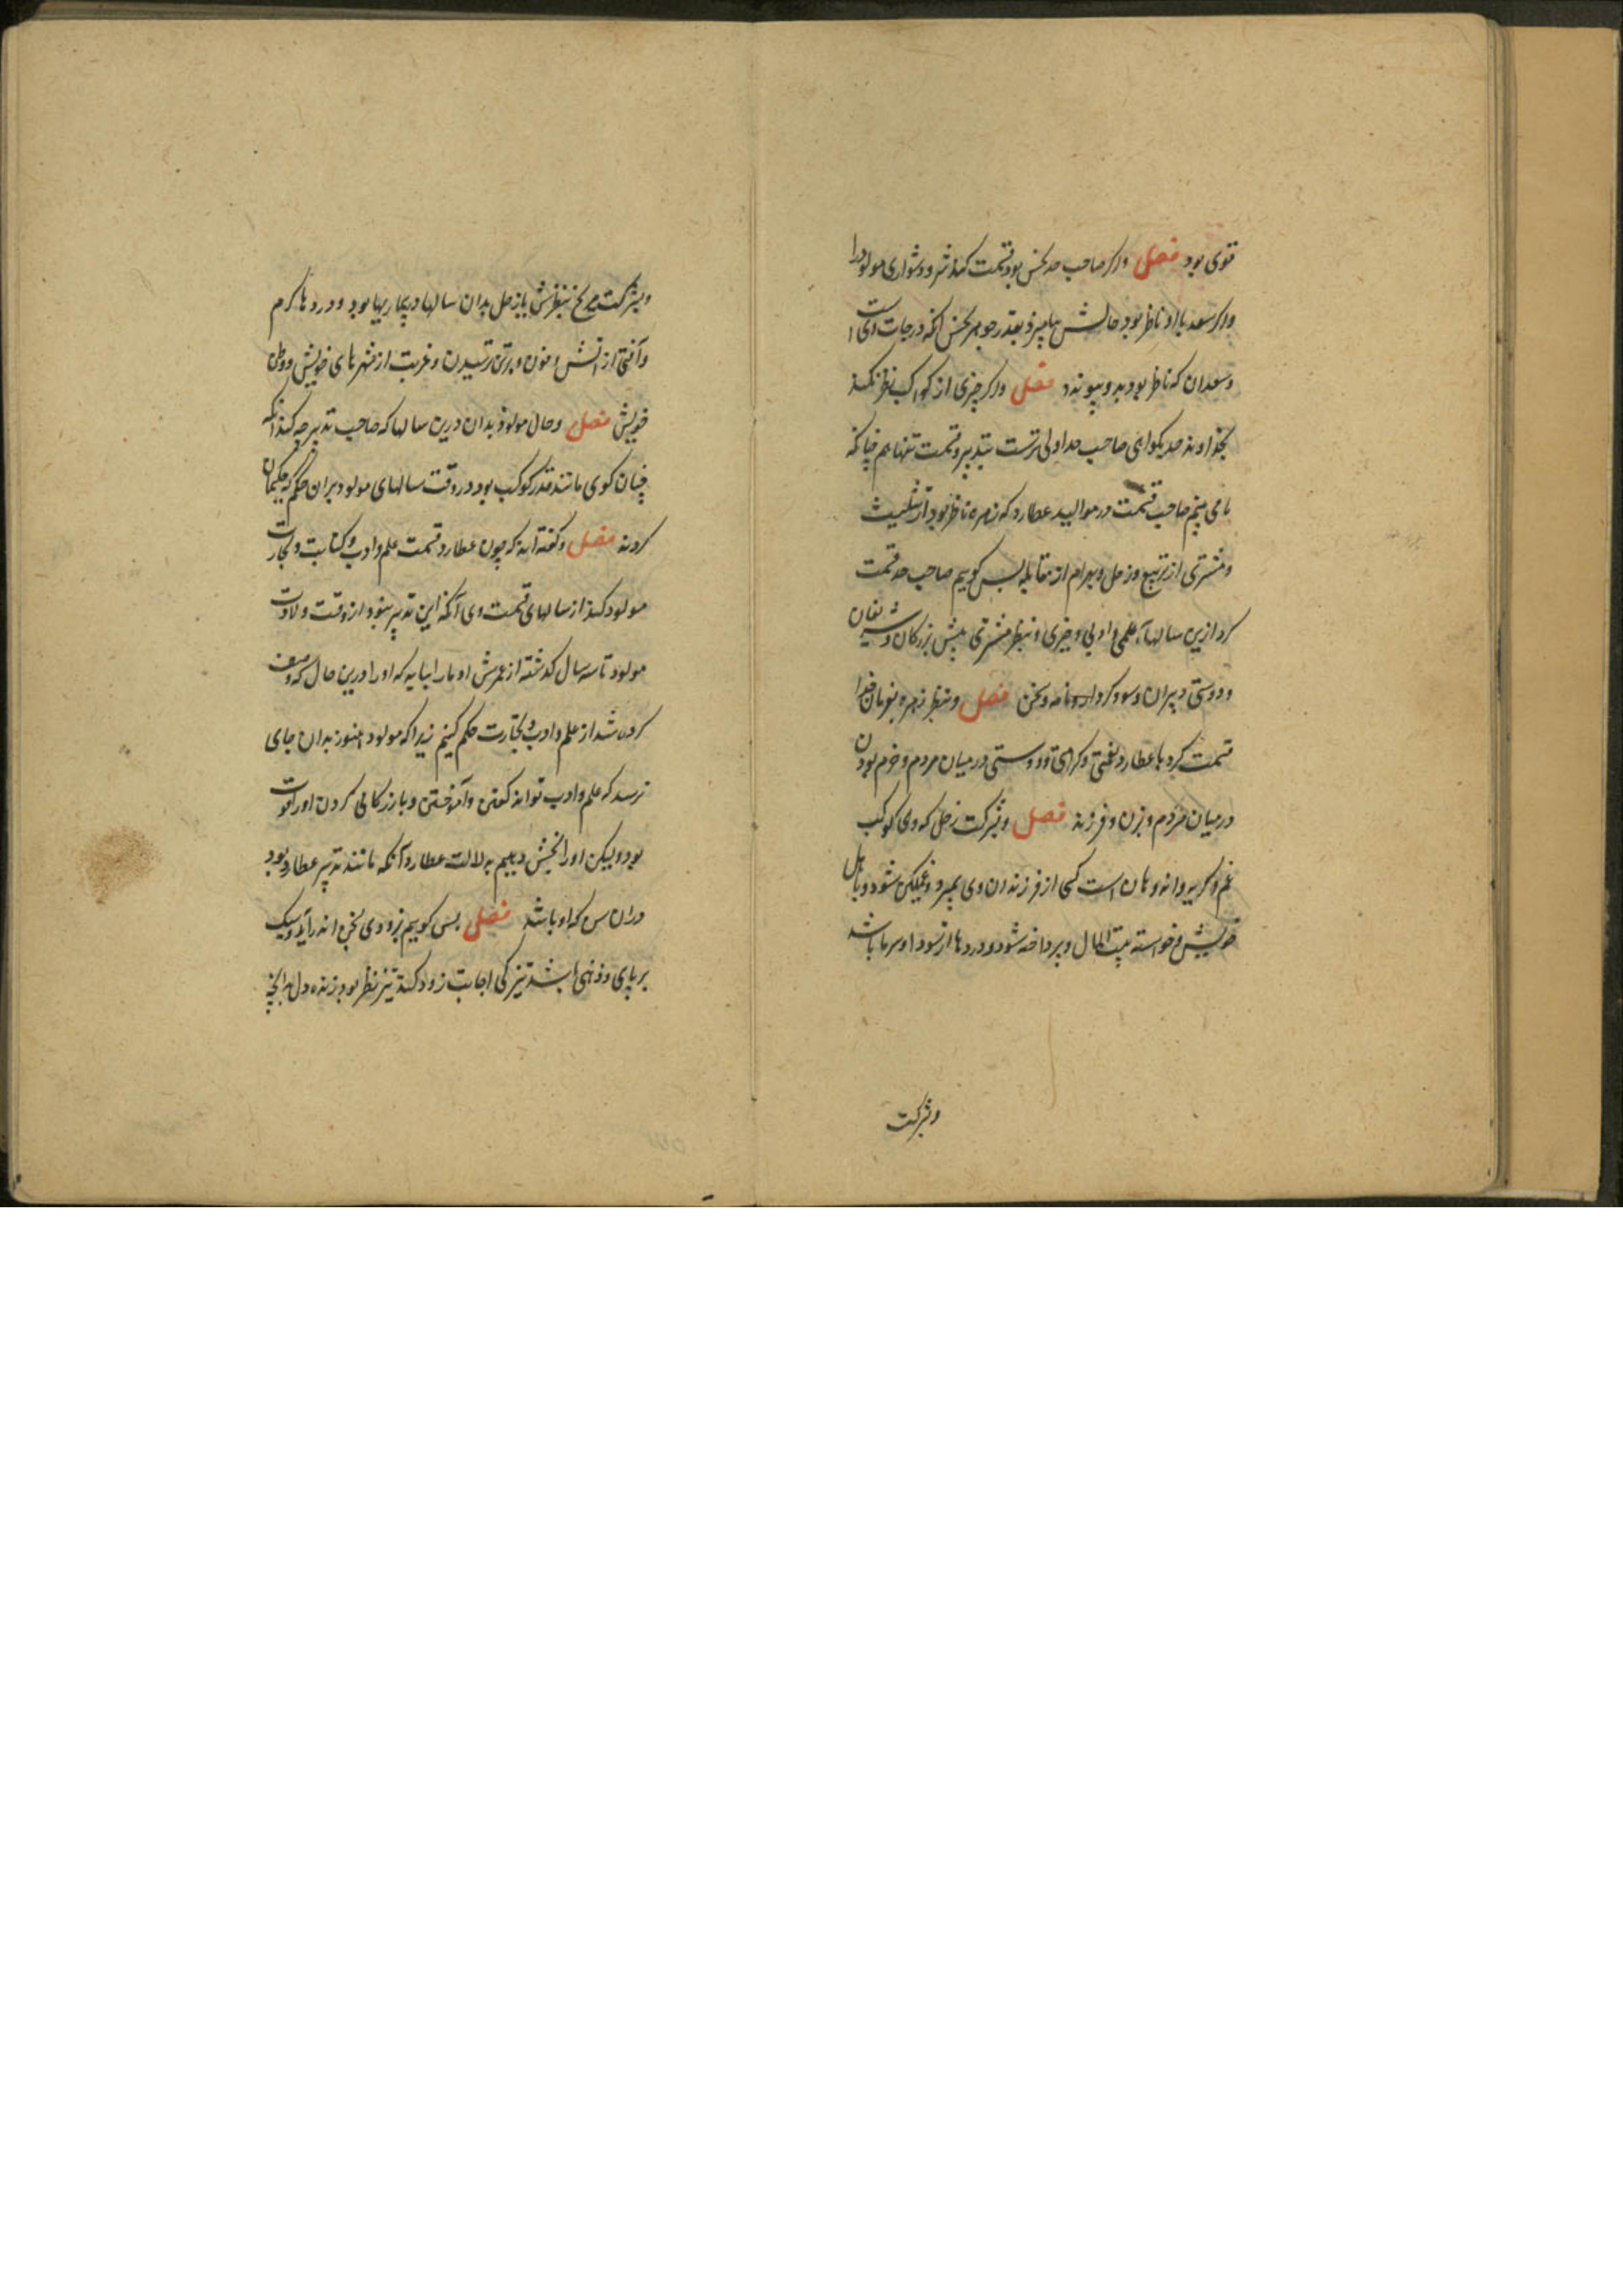 قوی بود فصل واگر صاحب حد نحس بود قسمت کند شر و دشواری مولود را
واگر سعد با او ناظر بود حالش بیامیزد بقدر جوهر نحس آنکه درجات وی است
وسعدان که ناظر بود بدو پیوندد فصل واگر چیزی از کواکب نظر نکند
بخداوند حد بگو ای صاحب حد اولی ترست بتدبیر و قسمت تنها هم چنانکه
ما می بینم صاحب قسمت در موالید عطارد که زهره ناظر بود از تثلیث
ومشتری از تربیع وزحل وبهرام از مقابله بس کویم صاحب حد قسمت
کرد ازین سالها علمی و ادبی و خیری و بنظر مشتری پیش بزرکان و شریفان
ودوستی دبیران و سود کردار و نامه و سخن فصل وبنظر زهره بفرمان خدا
قسمت کرد با عطارد نعمتی و کرامتی و دوستی در میان مردم و خرم بودن
در میان مردم وبزن و فرزند فصل وبشرکت زحل که وی کوکب
غم و کریه و اندوهان است کسی از فرزندان وی بمیرد و غمکین شود و بامل
خویش و خواسته بیت المال و برداخته شود و دردها از سودا و سرما باشد
وبشرکت
وبشرکت مریخ بنظرش یا زحل بدان سالها در بیماریها بود و دردهای کرم
وآفتی از آتش و خون و برتن ترسیدن و غربت از شهرهای خویش و وطن
خویش فصل وحال مولود بدان درین سالها که صاحب تدبیر چه کند آنکه
چنان کوی مانند قدر کوکب بود در وقت سالهای مولود بران حکم که حکیمان
کردند فصل وکفته اند که چون عطارد قسمت علم و ادب و کتابت و تجارت
مولود کند از سالهای قسمت وی آنکه این تدبیر بنود از وقت ولادت
مولود تا سه سال کذشته از عمرش او ما را نباید که او را درین حال که وصف
کرده شد از علم و ادب و تجارت حکم کنیم زیرا که مولود هنوز بدان جای
نرسد که علم و ادب تواند کفتن و آموختن و بازرکانی کردن او را قوت
بود ولیکن او را بخشش دهیم بدلالت عطارد آنکه مانند تدبیر عطارد بود
دران سن که او باشد فصل بس کویم بزودی بسخن اندر آید و سبک
بر پای و ذهنی باشد تیزکی اجابت زود کند تیز نظر بود زنده دل بدانچه